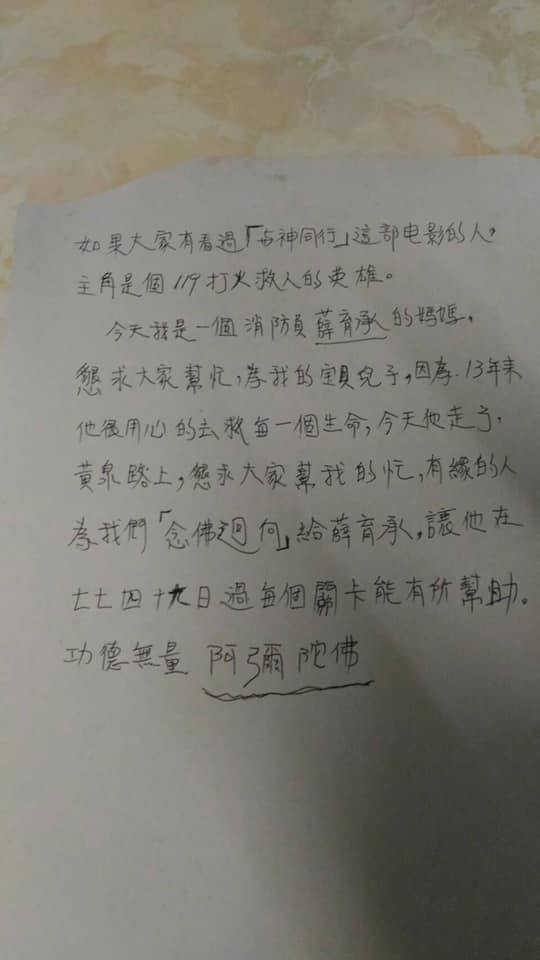 如果大家有看過「与神同行」這部电影的人,
主角是個119打火救人的英雄。
今天我是一個消防員薛育承的媽媽,
懇求大家幫忙,為我的寶貝兒子,因為13年來
他很用心的去救每一個生命,今天他走了,
黃泉路上,懇求大家幫我的忙,有緣的人
為我們「念佛迴向」給薛育承,讓他在
七七四十九日過每個關卡能有所幫助。
功德無量 阿彌陀佛